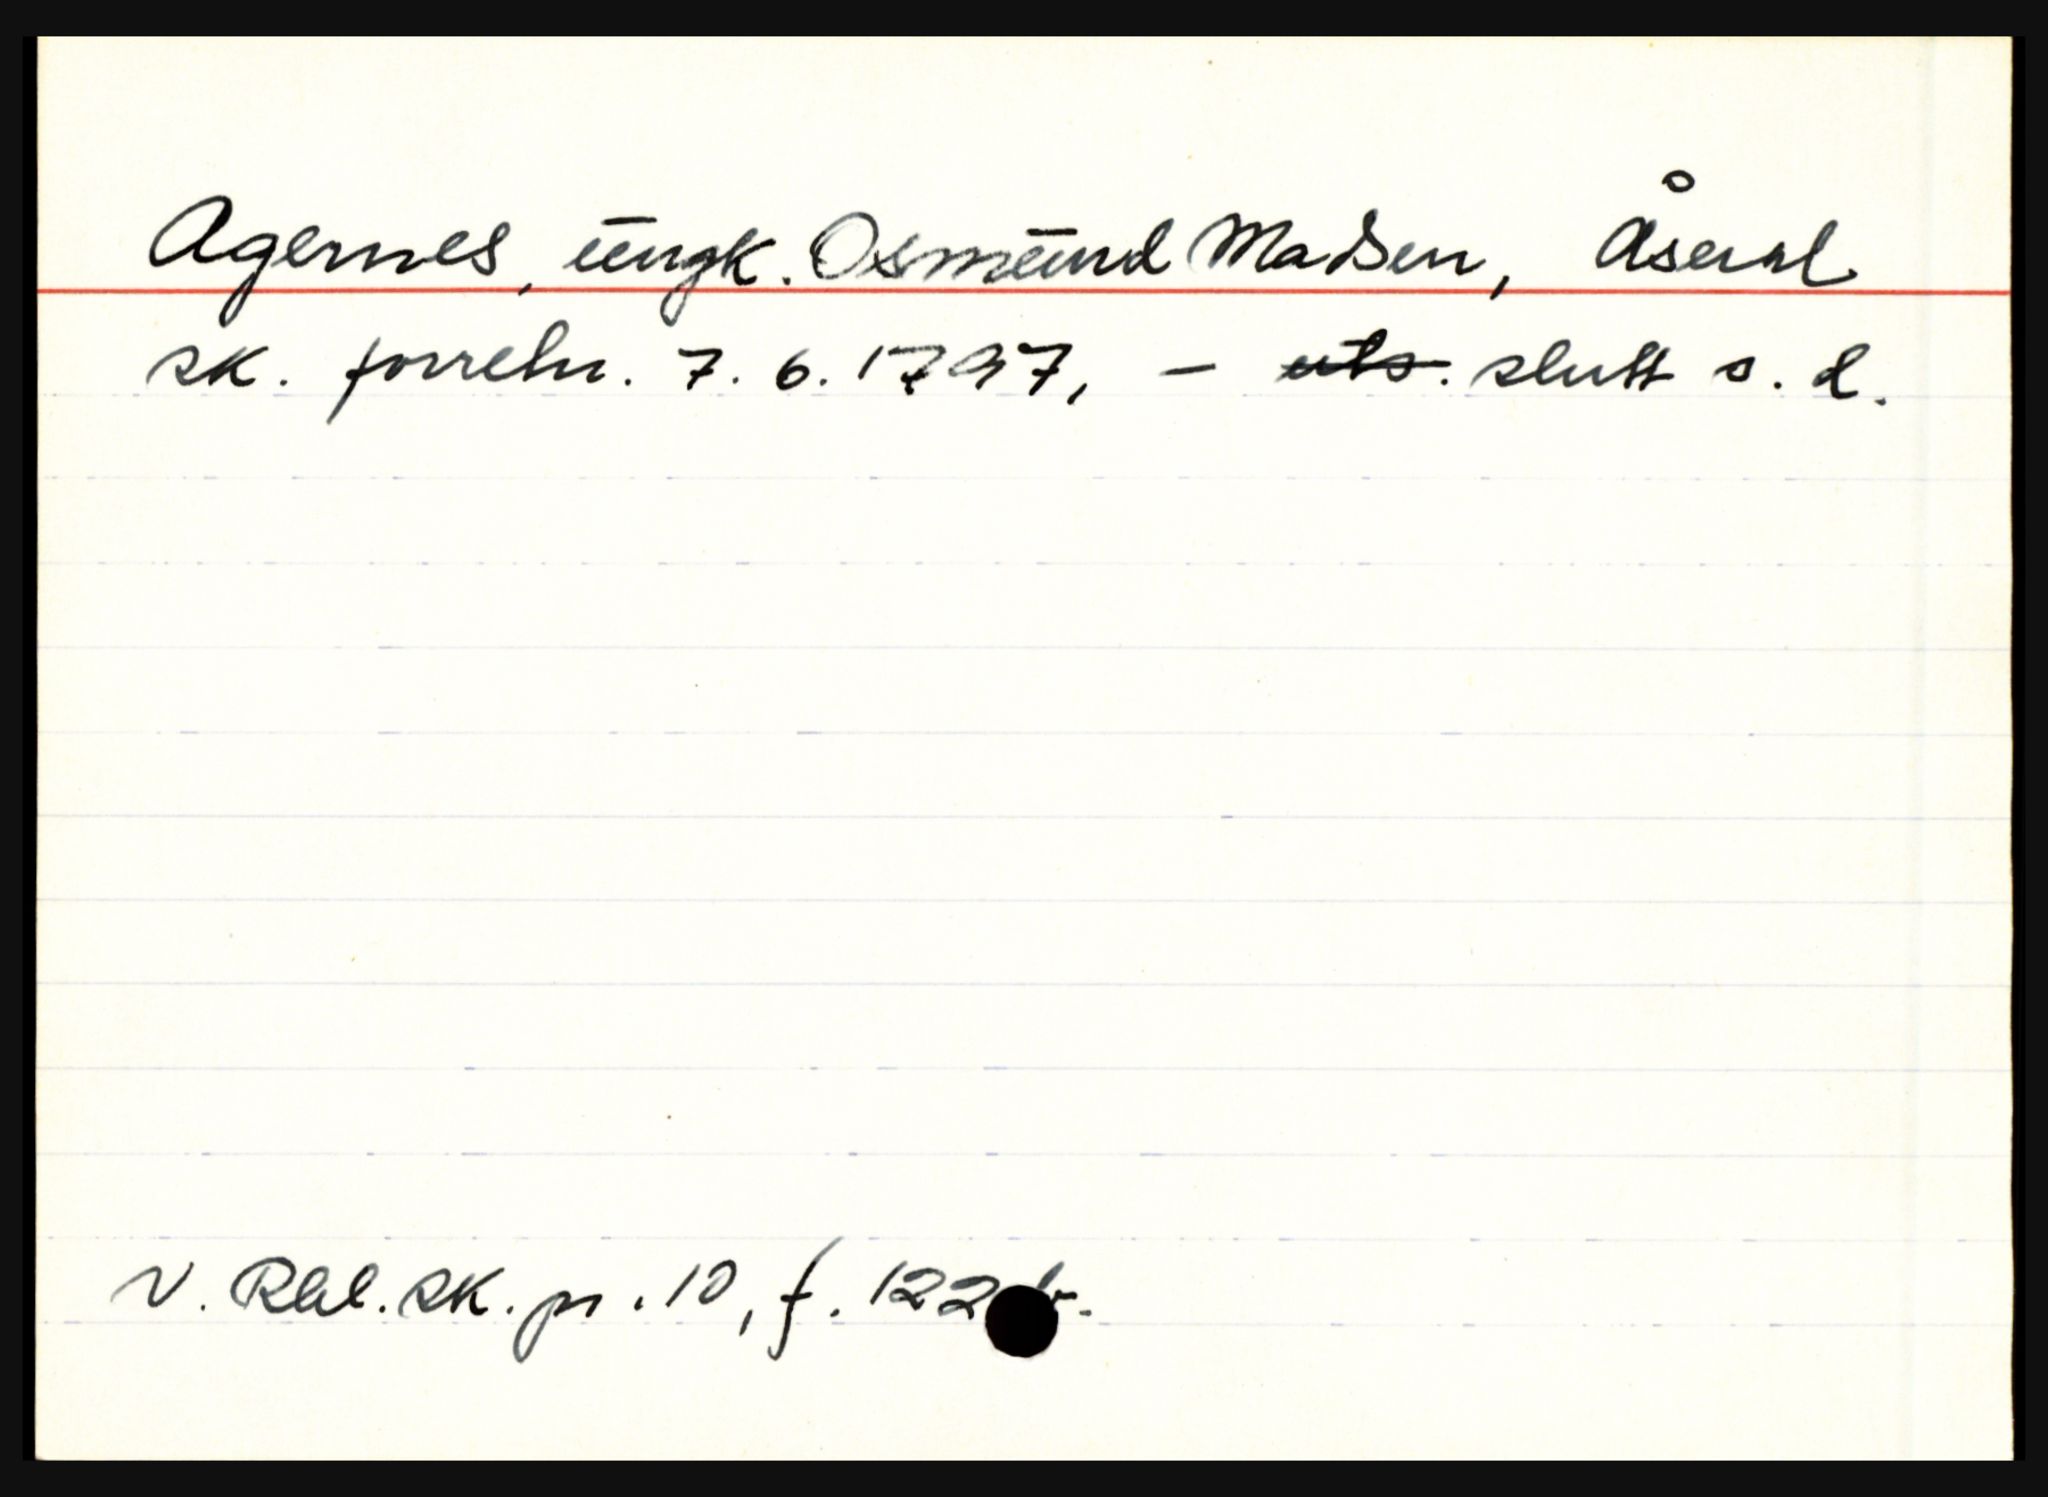 Agernes, ungk. Osmund Madsen, Åseral
sk. forretn. 7. 6. 1797, - uts. slutt s. d.
V. Rbl. sk. pr. 10, f. 122 b.